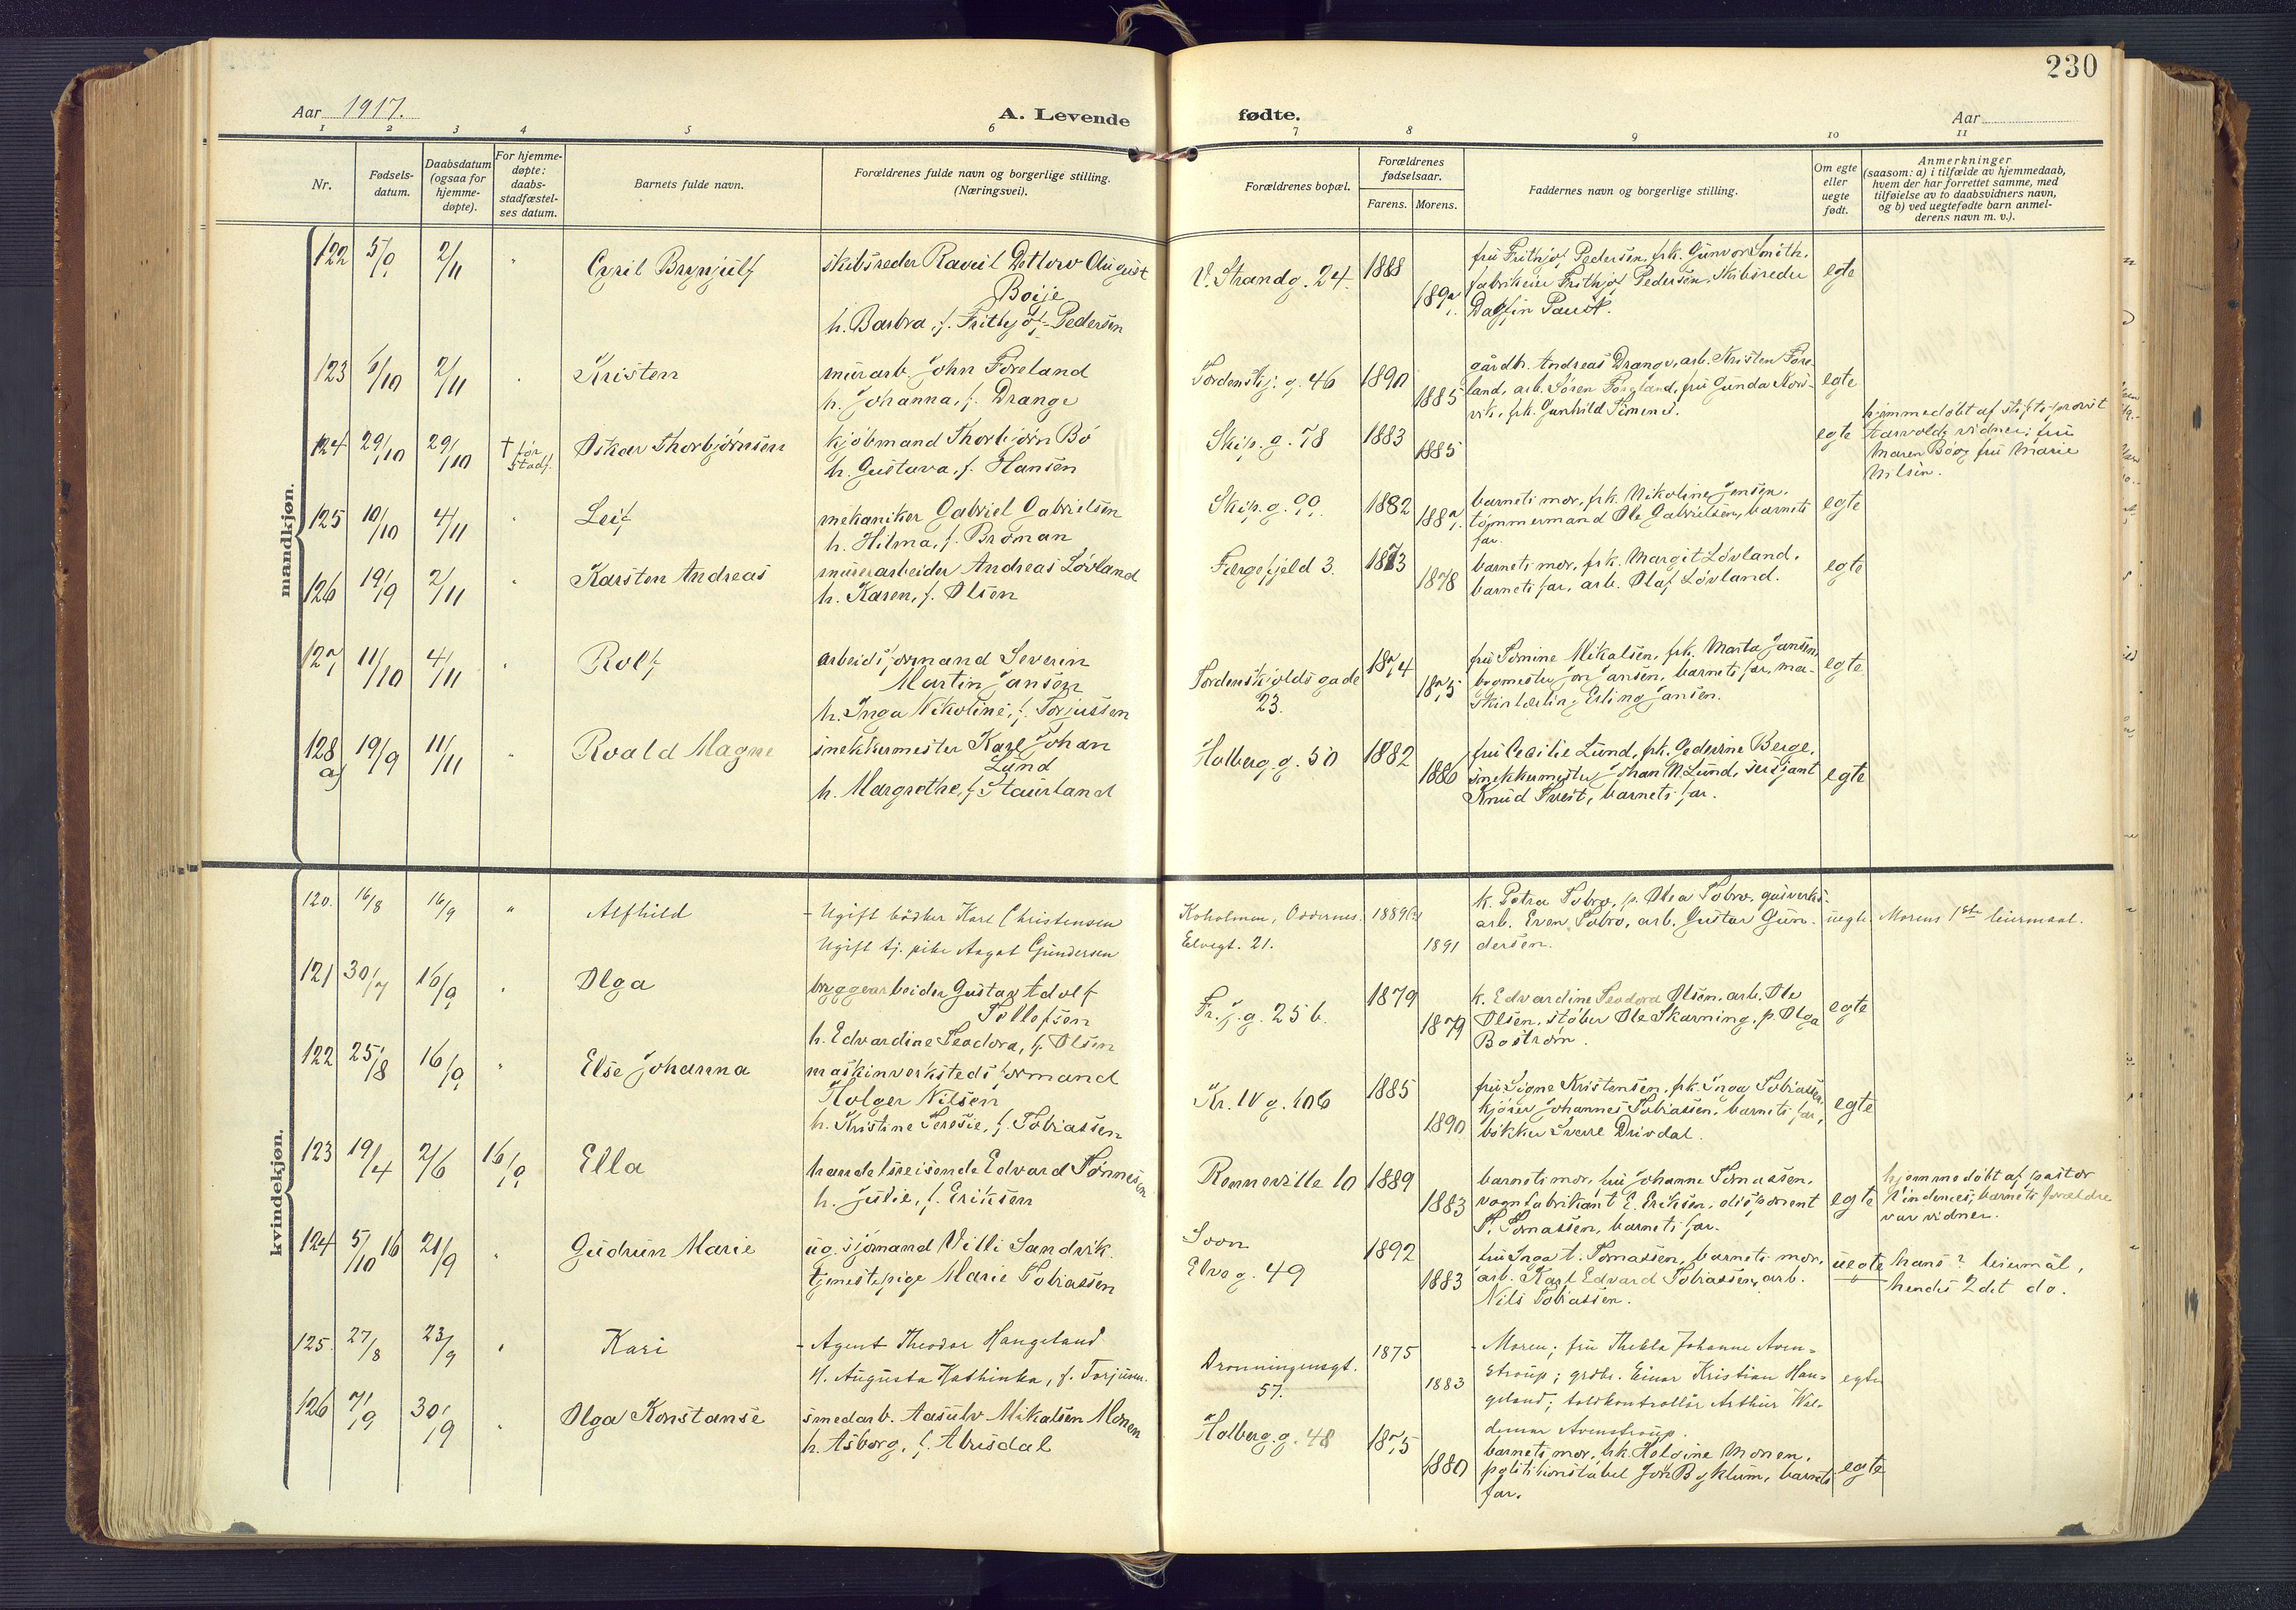 230
Aar 1917.
A. Levende
fødte.
Aar
1 2 3 4 5 6 7 8 9 10 11
Nr.
Fødsels-
datum.
Daabsdatum
(ogsaa for
hjemme-
døpte).
For hjemme-
døpte:
daabs-
stadfæstel-
ses datum.
Barnets fulde navn.
Forældrenes fulde navn og borgerlige stilling.
(Næringsvei).
Forældrenes bopæl.
Forældrenes
fødselsaar.
Farens. Morens.
Faddernes navn og borgerlige stilling.
Om egte
eller
uegte
født.
Anmerkninger
(saasom: a) i tilfælde av hjemmedaab,
hvem der har forrettet samme, med
tilføielse av to daabsvidners navn,
og b) ved uegtefødte barn anmel-
derens navn m. v.).
mandkjøn.
122 5/9 2/11 " Cyril Brynjulf
skibsreder Ravul Detlow August
Boije
h. Barbra, f. Frithjof-Pedersen
V. Strandg. 24. 1888 1897
fru Frithjof Pedersen, frk. Gunvor Smith.
fabrikeier Frithjof Pedersen, Skibsreder
Dagfin Paust.
egte
123 6/10 2/11 " Kristen
murarb. John Föreland
h. Johanna, f. Drange
Tordenskj. g. 46 1890 1885
gårdb. Andreas Drange, arb. Kristen Före-
land, arb. Sören Föreland, fru Gunda Nord-
vik, frk. Gunhild Simens.
egte
124 29/10 29/10 † før
stadf.
Oskar Thorbjörnsen
kjöbmand Thorbjörn Bö
h. Gustava, f. Hansen
Skip. g. 78 1883 1885
egte
hjemmedöbt af stiftsprovst
Aarvold; vidner: fru
Maren Bö og fru Marie
Nilsen.
125 10/10 4/11 " Leif
mekaniker Gabriel Gabrielsen
h. Hilma, f. Broman
Skip. g. 99. 1882 1887
barnets mor, frk. Nikoline Jensen.
tømmermand Ole Gabrielsen, barnets
far.
egte
126 19/9 2/11 " Karsten Andreas
murerarbeider Andreas Lövland
h. Karen, f. Olsen
Færgefjeld 3. 1873 1878
barnets mor, frk. Margit Lövland.
barnets far, arb. Olaf Lövland.
egte
127 11/10 4/11 " Rolf
arbeidsformand Severin
Martin Jansen
h. Inga Nikoline, f. Torjussen
Tordenskjolds gade
23. 1874 1875
fru Tomine Mikalsen, frk. Marta Jansen,
bromester Jon Jansen, barnets far, ma-
skinlærling Erling Jansen.
egte
128
a) 19/9 11/11 " Roald Magne
snekkermester Karl Johan
Lund
h. Margrethe, f. Staurland
Holberg. g. 50 1882 1886
fru Cecilie Lund, frk. Gederine Berge,
snekkermester Johan M. Lund, sersjant
Knud Tveit, barnets far.
egte
kvindekjøn.
120. 16/8 16/9 " Alfhild
- Ugift bödker Karl Christensen
Ugift tj. pike Aagot Gundersen
Koholmen, Oddernes. 1889
Elvegt. 21. 1891
k. Petra Tobro, p. Olea Tobro, gasverks-
arb. Even Tobro, arb. Gustav Gun-
dersen.
uegte. Morens 1ste leiermaal.
121 30/7 16/9 " Olga
bryggearbeider Gustav Adolf
Tellefsen
h. Edvardine Teodora, f. Olsen
Fr. j. g. 25 b. 1879 1879
k. Edvardine Teodora Olsen, arb. Ole
Olsen, støber Ole Skarning, p. Olga
Boström.
egte
122 25/8 16/9 " Else Johanna
maskinverkstedsformand
Holger Nilsen
h. Kristine Teresie, f. Tobiassen
Kr. IV g. 106 1885 1890
fru Signe Kristensen, frk. Inga Tobiassen,
kjører Johannes Tobiassen, barnets far,
bökker Sverre Drivdal.
egte
123 19/4 2/6 16/9 Ella
handelsreisende Edvard Tönnesen
h. Julie, f. Eriksen
Rennevilte 10 1889 1883
barnets mor, fru Johanne Tomassen,
vognfabrikant E. Eriksen, disponent
T. Tomassen, barnets far.
egte
hjemmedöbt af pastor
Vindenes; barnets forældre
var vidner.
124 5/10 16 21/9 " Gudrun Marie
ug. sjömand Villi Sandvik.
tjenestepige Marie Tobiassen
Soon
Elve g. 49 1892 1883
fru Inga t. Tomassen, barnets mor,
arb. Karl Edvard Tobiassen, arb.
Nils Tobiassen.
uegte
hans ? leiermål,
hendes 2det do.
125. 27/8 23/9 " Kari
- Agent Theodor Haugeland
H. Augusta Kathinka, f. Torjusen.
Dronningensgt.
57. 1875 1883
- Moren; fru Thekla Johanne Aven-
strup; grdbr. Einar Kristian Hau-
geland; toldkontrollör Arthur Wal-
demar Avenstrup.
egte
126 7/9 30/9 " Olga Konstanse
smedarb. Aasulv Mikalsen Monen
h. Asborg, f. Abusdal
Holberg. g. 48 1875 1880
barnets mor, frk. Helvine Monen,
politikonstabel Jon Byklum, barnets
far.
egte